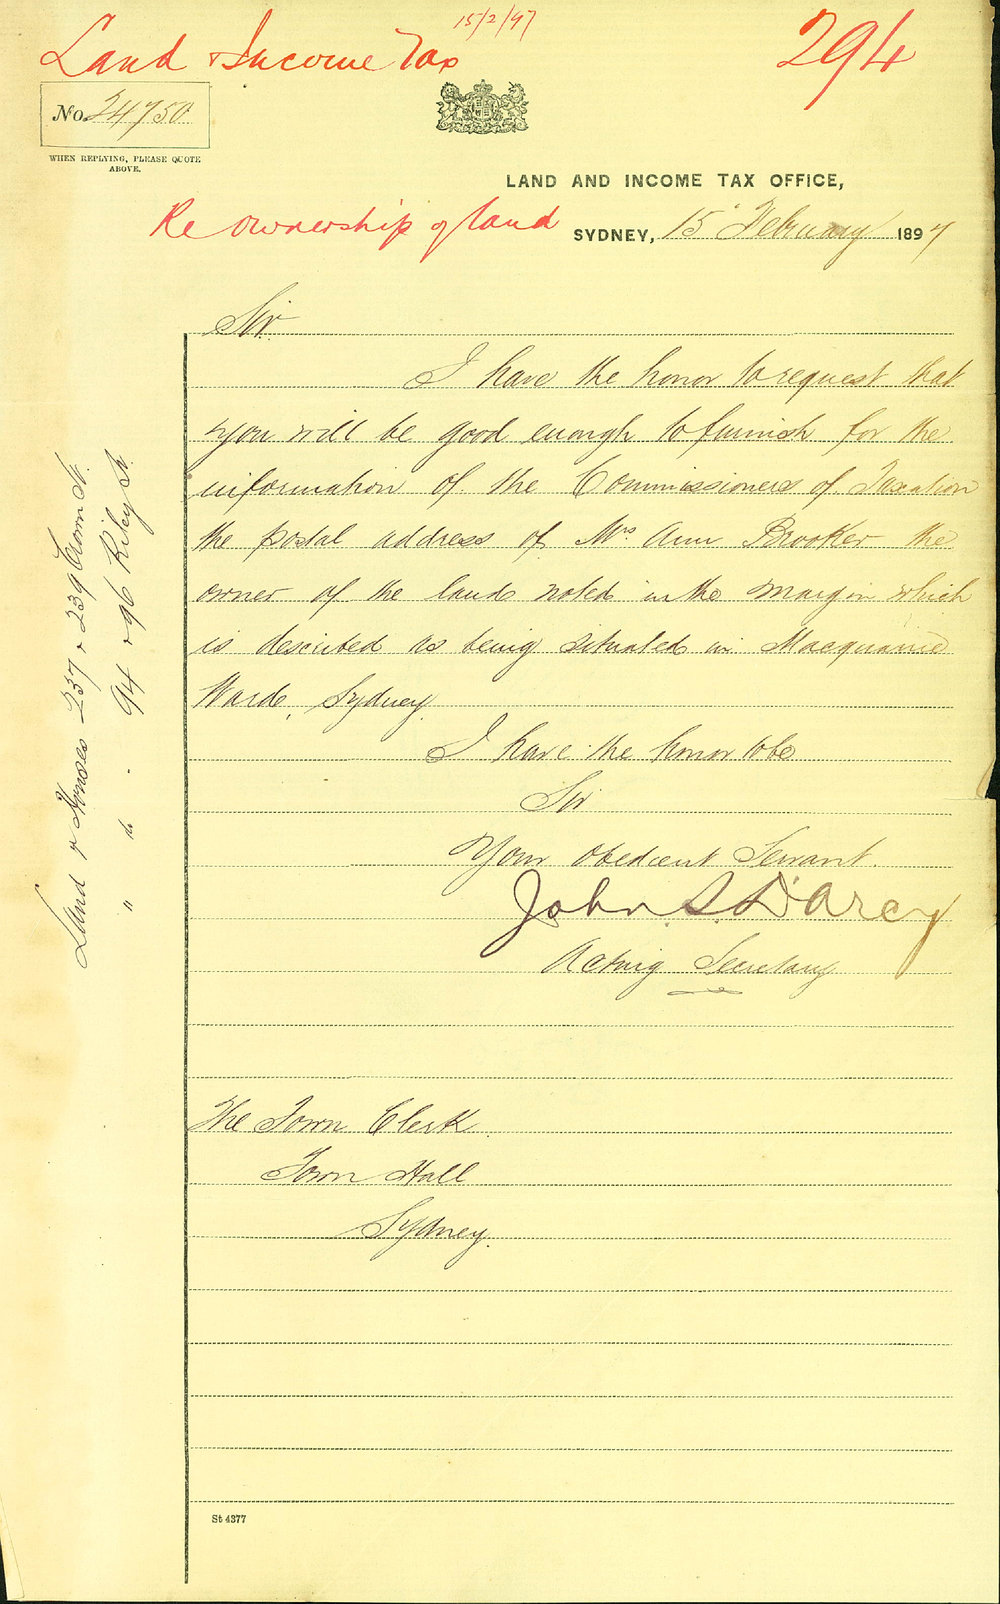 15/2/97
Land & Income Tax
294
No. 24750
WHEN REPLYING, PLEASE QUOTE
ABOVE.
LAND AND INCOME TAX OFFICE,
Re ownership of land
SYDNEY, 15 February 1897
Sir
I have the honor to request that
you will be good enough to furnish for the
information of the Commissioners of Taxation
the postal address of Mrs Ann Brooker the
owner of the lands noted in the margin which
is described as being situated in Macquarie
Ward, Sydney.
I have the honor to be
Sir
Your Obedient Servant.
John S. D'Arcy
Acting Secretary
Land & Houses 237 & 239 Crown St.
" do - 94 & 96 Riley St.
The Town Clerk
Town Hall
Sydney.
St 4377